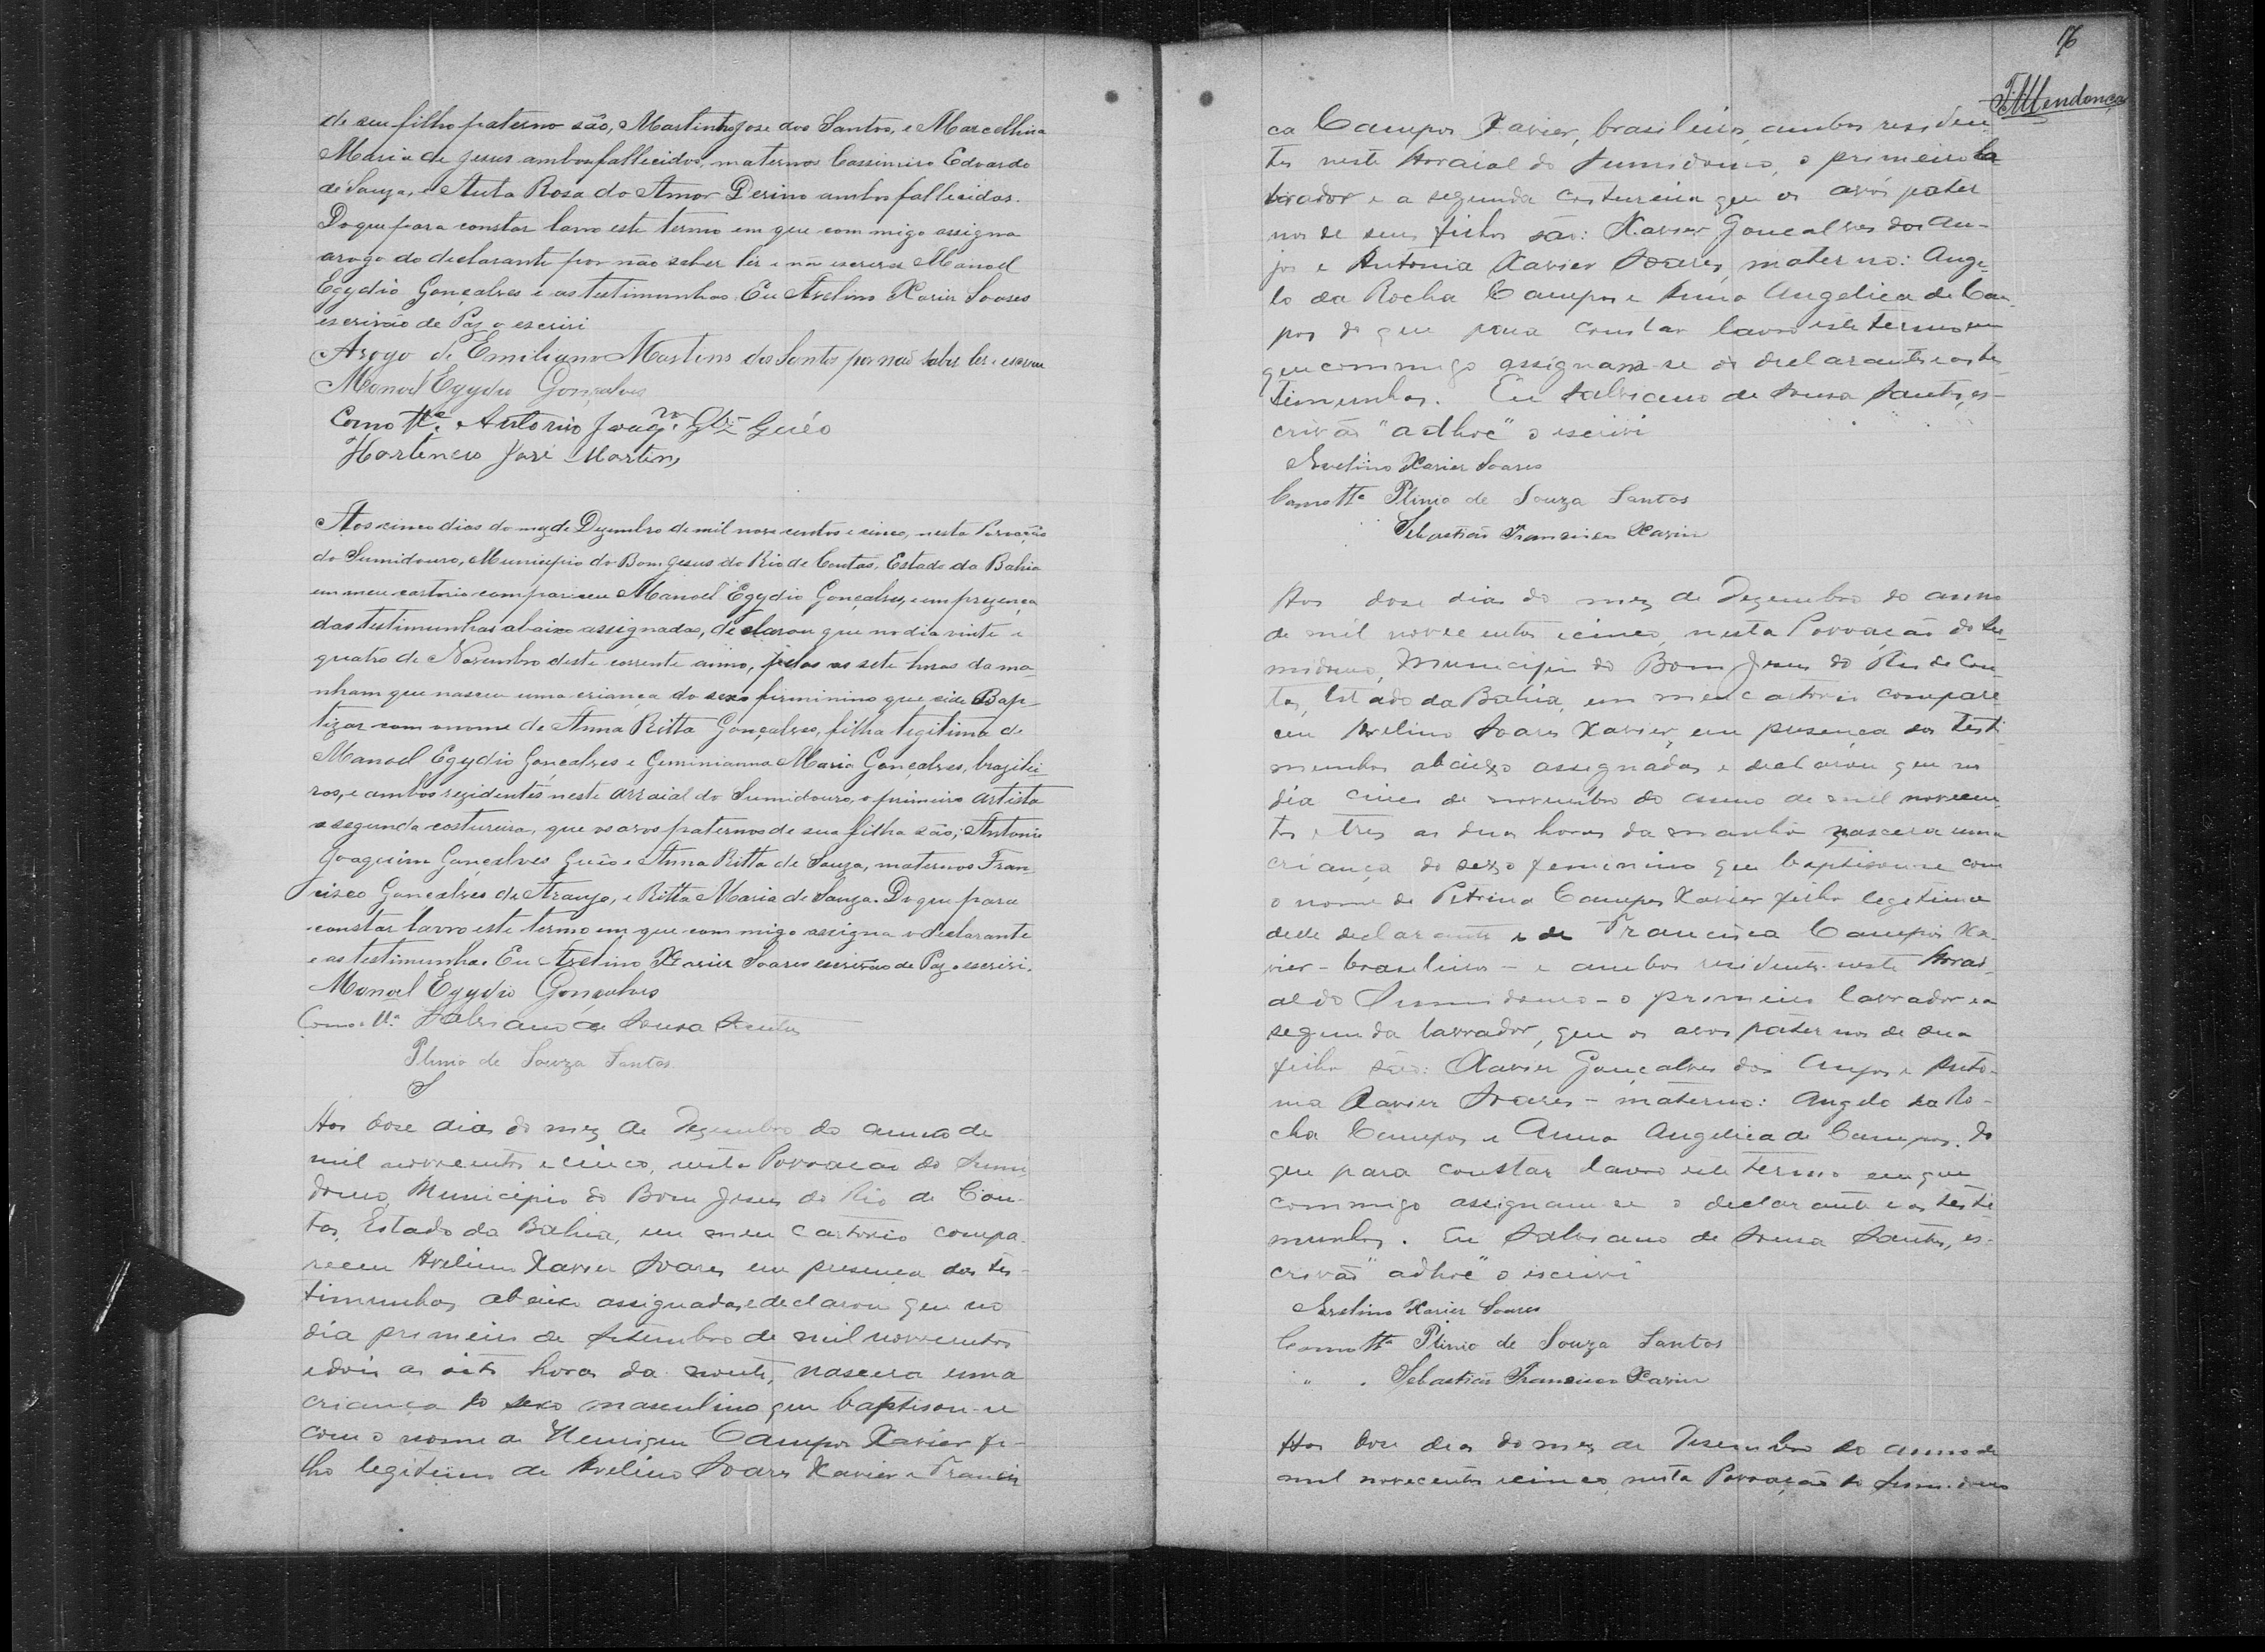 de seu filho paterno são, Martinho Jose dos Santos, e Marcellina
Maria de Jesus ambos fallecidos, maternos Cassimiro Edoardo
de Souza, e Auta Rosa do Amor Devino ambos fallecidos.
Do que para constar lavro este termo em que com migo assigna
arogo do declarante por não saber ler e não escrever Manoel
Egydio Gonçalves e as testimunhas. Eu Avelino Xavier Soares
escrivão de Paz o escrivi
Arogo de Emiliano Martins dos Santos por não saber ler e escrever
Manoel Egydio Gonçalves
Como tta. Antonio Joaqm. Glz Guéo
Hortencio José Martins
Aos cinco dias do mez de Dezembro de mil nove centos e cinco, nesta Povoação
do Sumidouro, Municipio do Bom Jesus do Rio de Contas, Estado da Bahia
em meu cartorio compariceu Manoel Egydio Gonçalves, e em prezença
das testimunhas abaixo assignadas, declarou que no dia vinte e
quatro de Novembro deste corrente anno, pelas as sete horas da ma-
nham que nasceu uma criança do sexo fiminino que Bap-
tizar com o nome de Anna Ritta Gonçalves, filha legitima de
Manoel Egydio Gonçalves e Geminianna Maria Gonçalves, brazilei-
ros, e ambos rezidentes neste arraial do Sumidouro, o primeiro artista
a segunda costureira, que os avos paternos de sua filha são; Antonio
Joaquim Gonçalves Guéo e Anna Ritta de Souza, maternos Fran-
cisco Gonçalves de Araujo, e Ritta Maria de Souza. Do que para
constar lavro este termo em que com migo assigna o declarante
e as testimunhas. Eu Avelino Xavier Soares escrivão de Paz o escrivi.
Manoel Egydio Gonçalves
Como tta. Salviano de Sousa Santos
Plinio de Souza Santos
S
Aos dose dias do mez de Dezembro do anno de
mil novecentos e cinco, nesta Povoacão do Sumi-
douro, Municipio do Bom Jesus do Rio de Con-
tas, Estado da Bahia, em meu cartorio compa-
receu Avelino Xavier Soares em presença das tes-
timunhas abaixo assignadas, e declarou que no
dia primeiro de Setembro de mil novecentos
e dois as oito horas da noute, nascera uma
criança do sexo masculino que baptisou-se
com o nome de Henrique Campos Xavier fi-
lho legitimo de Avelino Soares Xavier e Francis
16
F. Mendonça
ca Campos Xavier, brasileiros, ambos residen-
tes neste Arraial do Sumidouro, o primeiro la
vrador e a segunda costureira que os avós pater
nos de seus filhos são: Xavier Gonçalves dos An-
jos e Antonia Xavier Soares, materno: Ange-
lo da Rocha Campos e Anna Angelica de Cam-
pos do que para constar lavro este termo em
que commigo assignam-se os declarantes e as tes
timunhas. Eu Salviano de Sousa Santos, es-
crivão "adhoc" o escrivi
Avelino Xavier Soares
Como tta Plinio de Souza Santos
Sebastião Francisco Xavier
Aos dose dias do mez de Dezembro do anno
de mil novecentos e cinco, nesta Povoacão do Su-
midouro, Municipio do Bom Jesus do Rio de Con-
tas, Estado da Bahia, em meu cartorio compare-
ceu Avelino Soares Xavier, em presença das testi-
munhas abaixo assignadas e declarou que no
dia cinco de novembro do anno de mil novecen-
tos e tres as duas horas da manhã nascera uma
criança do sexo feminino que baptisou-se com
o nome de Petrina Campos Xavier filha legitima
dele declarante e de Francisca Campos Xa-
vier - brasileiros - e ambos residentes neste Arrai-
al do Sumidouro - o primeiro lavrador e a
segunda lavrador, que os avos paternos de sua
filha são: Xavier Gonçalves dos Anjos e Anto-
nia Xavier Soares - materno: Angelo da Ro-
cha Campos e Anna Angelica de Campos. do
que para constar lavro este termo em que
commigo assignam-se o declarante e as testi-
munhas. Eu Salviano de Sousa Santos, es-
crivão "adhoc" o escrivi
Avelino Xavier Soares
Como tta Plinio de Souza Santos
" . Sebastião Francisco Xavier
Aos dose dias do mez de Desembro do anno de
mil novecentos e cinco, nesta Povoação do Sumidouro